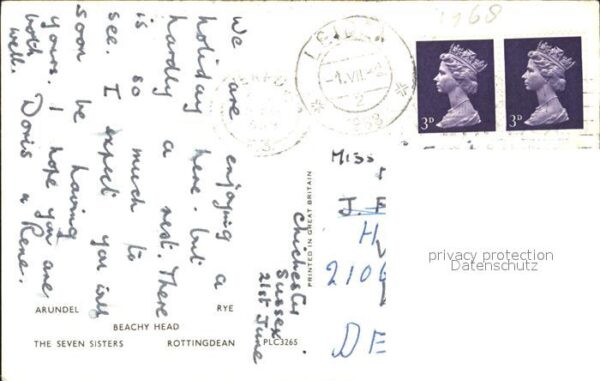 Chichester
Sussex
21st June
We are enjoying a
holiday here - but
hardly a rest. There
is so much to
see. I expect you will
soon be having
yours. I hope you are
well.
both
Doris & Rene.
ARUNDEL RYE
BEACHY HEAD
THE SEVEN SISTERS ROTTINGDEAN
PLC3265
PRINTED IN GREAT BRITAIN
1968
3D
3D
Miss
J. F
H
2106
DE
privacy protection
Datenschutz